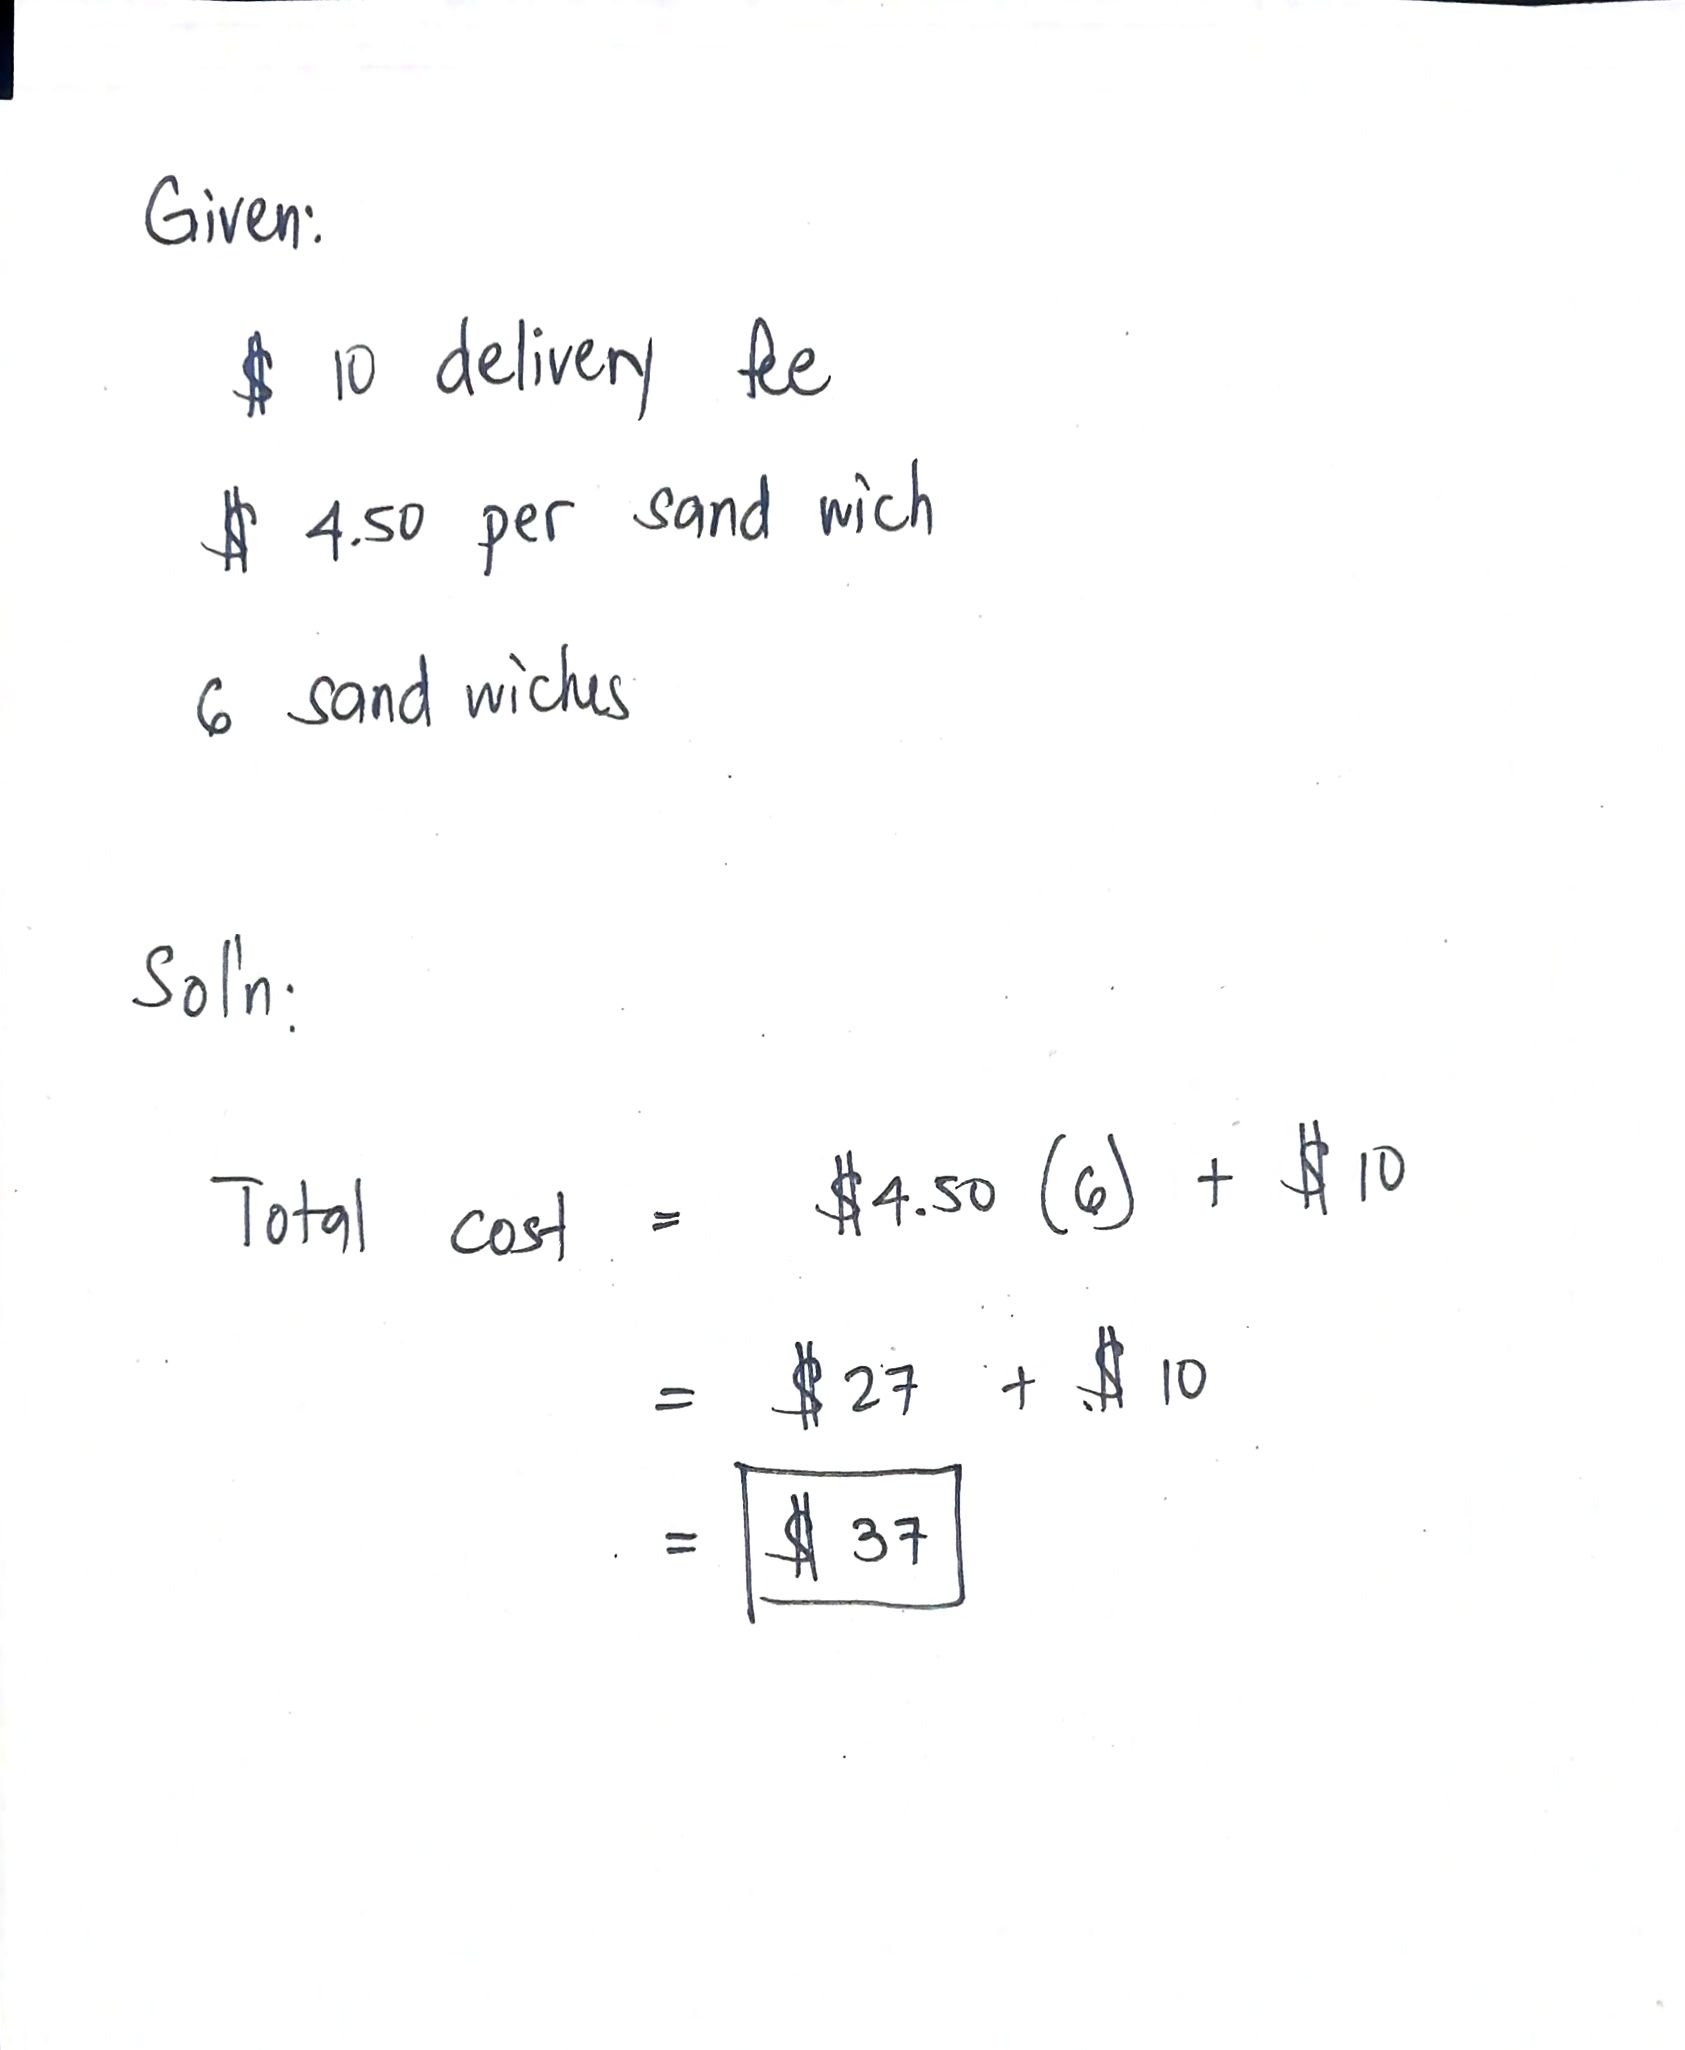 Given:
$ 10 delivery fee
$ 4.50 per sand wich
6 sand wiches
Sol'n:
Total cost = $4.50 (6) + $10
= $27 + $10
= $37